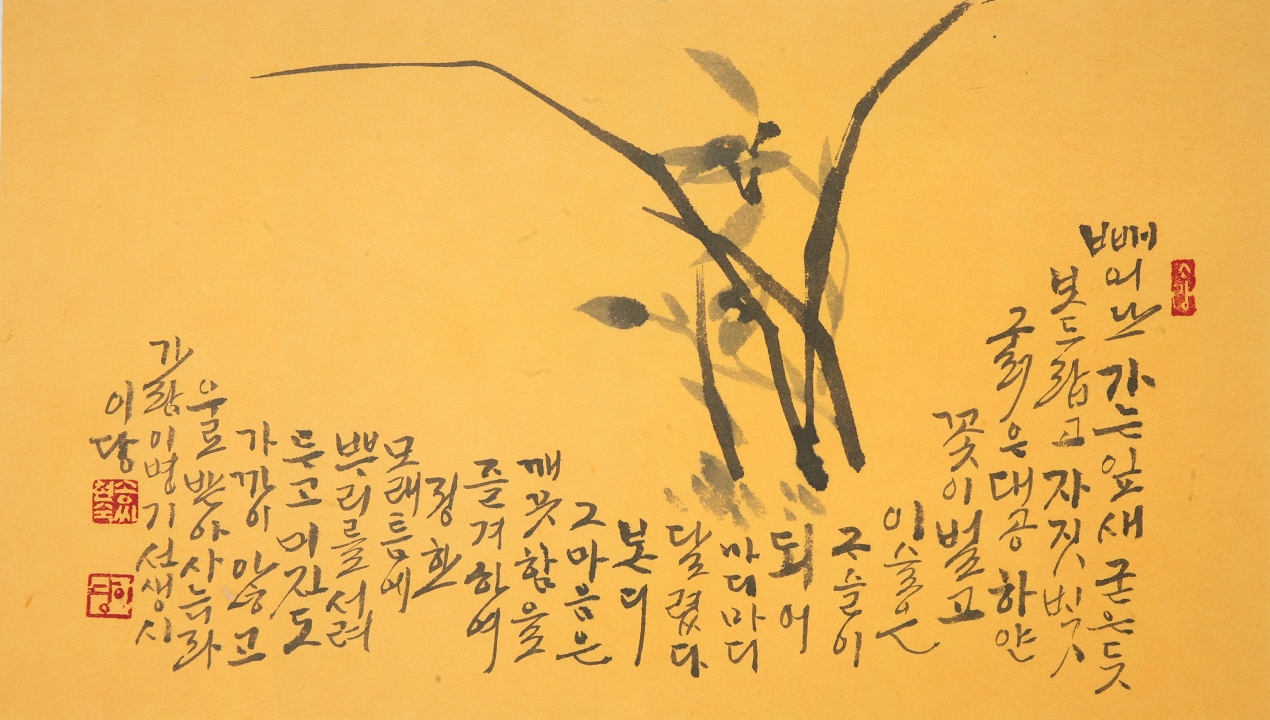 빼어난 가는 잎새 굳은듯
보드랍고 자짓빗
굵은 대공 하얀
꽃이 벌고
이슬은
구슬이
되어
마디마디
달렸다
본디
그 마음은
깨끗함을
즐겨하여
정한
모래틈에
뿌리를 서려
두고 미진도
가까이 않고
우로 받아 사느리라
가람 이병기 선생 시
이당